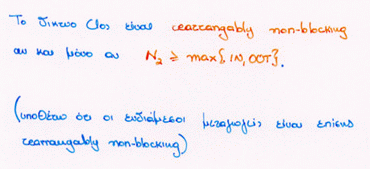 Το δίκτυο Clos είναι rearrangably non-blocking
αν και μόνο αν N₂ ≥ max{IN, OUT}.
(υποθέτω ότι οι ενδιάμεσοι μεταγωγείς είναι επίσης
rearrangably non-blocking)